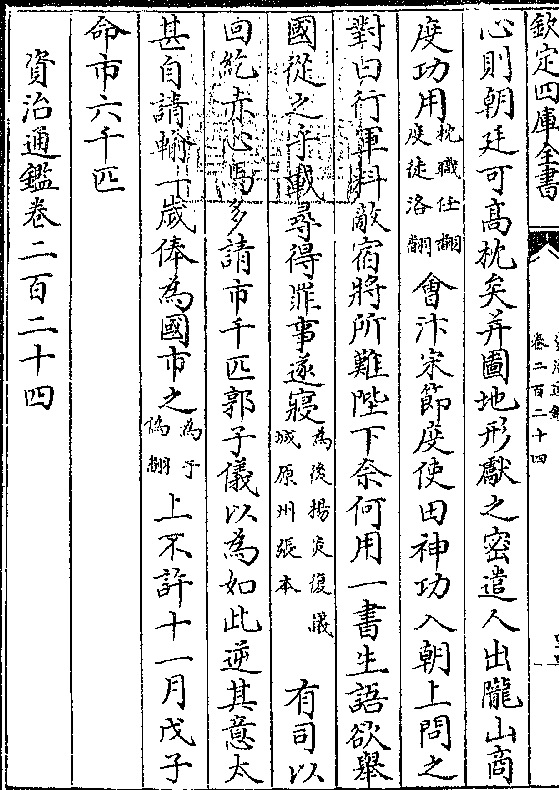 欽定四庫全書
卷二百二十四
心則朝廷可高枕矣并圖地形獻之密遣人出隴山商
度功用枕職任翻度徒洛翻會汴宋節度使田神功入朝上問之
對曰行軍料敵宿將所難陛下奈何用一書生語欲舉
國從之乎載尋得罪事遂寢為後楊炎復議城原州張本有司以
回紇赤心馬多請市千匹郭子儀以為如此逆其意太
甚自請輸一歲俸為國市之為于偽翻上不許十一月戊子
命市六千匹
資治通鑑卷二百二十四